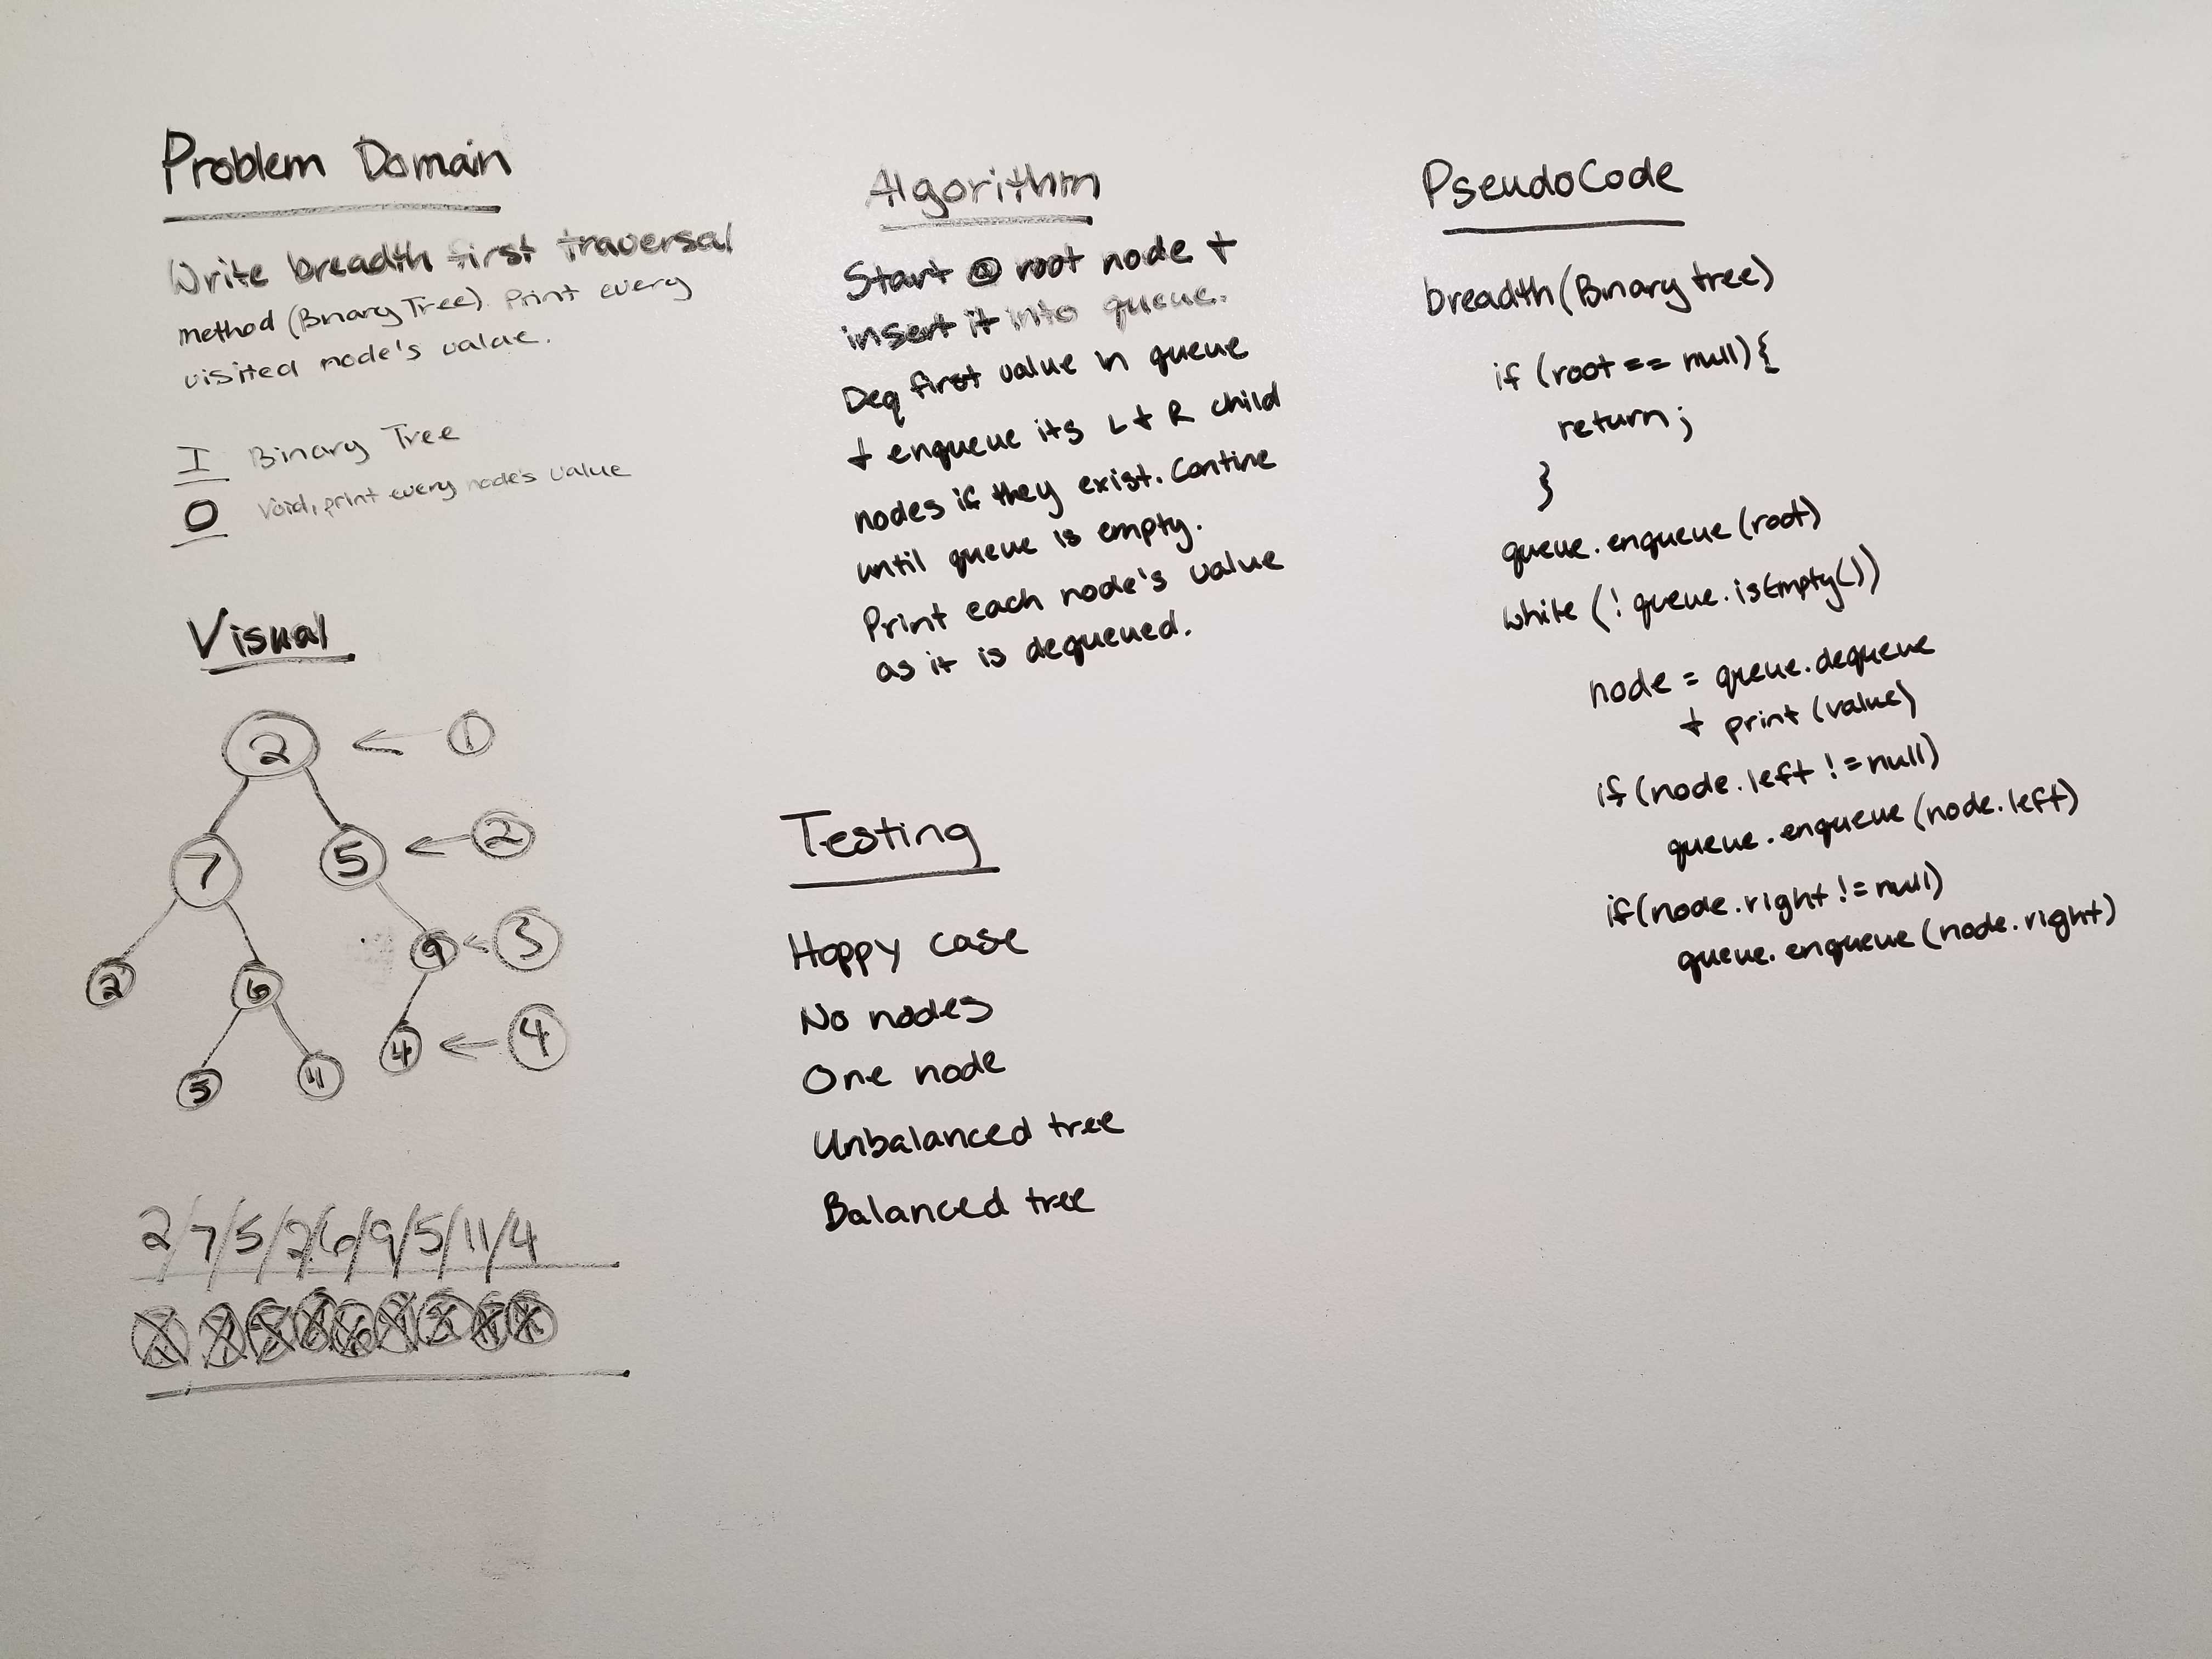 Problem Domain
Write breadth first traversal
method (Binary Tree). Print every
visited node's value.
I Binary Tree
O Void, print every node's value
Visual
2 ← 1
7 5 ← 2
2 6 9 ← 3
5 11 4 ← 4
2/7/5/2/6/9/5/11/4
Algorithm
Start @ root node +
insert it into queue.
Deq first value in queue
+ enqueue its L + R child
nodes if they exist. Contine
until queue is empty.
Print each node's value
as it is dequeued.
Testing
Happy case
No nodes
One node
Unbalanced tree
Balanced tree
PseudoCode
breadth(Binary tree)
if (root == null){
return;
}
queue.enqueue(root)
while (! queue.isEmpty())
node = queue.dequeue
+ print (value)
if (node.left != null)
queue.enqueue (node.left)
if(node.right != null)
queue.enqueue (node.right)